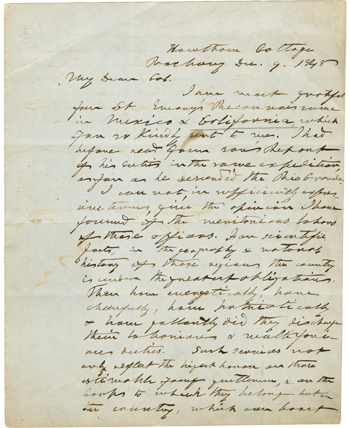 Hawthorn Cottage
Roxbury Dec. 9. 1848
My Dear Col.
I am most grateful
for Lt Emory's Reconnoissance
in Mexico & California which
you so kindly sent to me. I had
before read
of his duties in the same expedition
as he descended the Rio Grande.
I can not in sufficiently
terms, give the opinion I have
formed of the meritorious labors
of those officers. For scientific
facts, in the geography & natural
history of those regions the country
is under the greatest obligations.
Then how energetically, how
cheerfully, how patriotically
& how gallantly did they discharge
their laborious &
duties. Such services not
only reflect the highest honor on those
estimable young gentlemen, & on the
Corps to which they belong but on
the country, which can boast